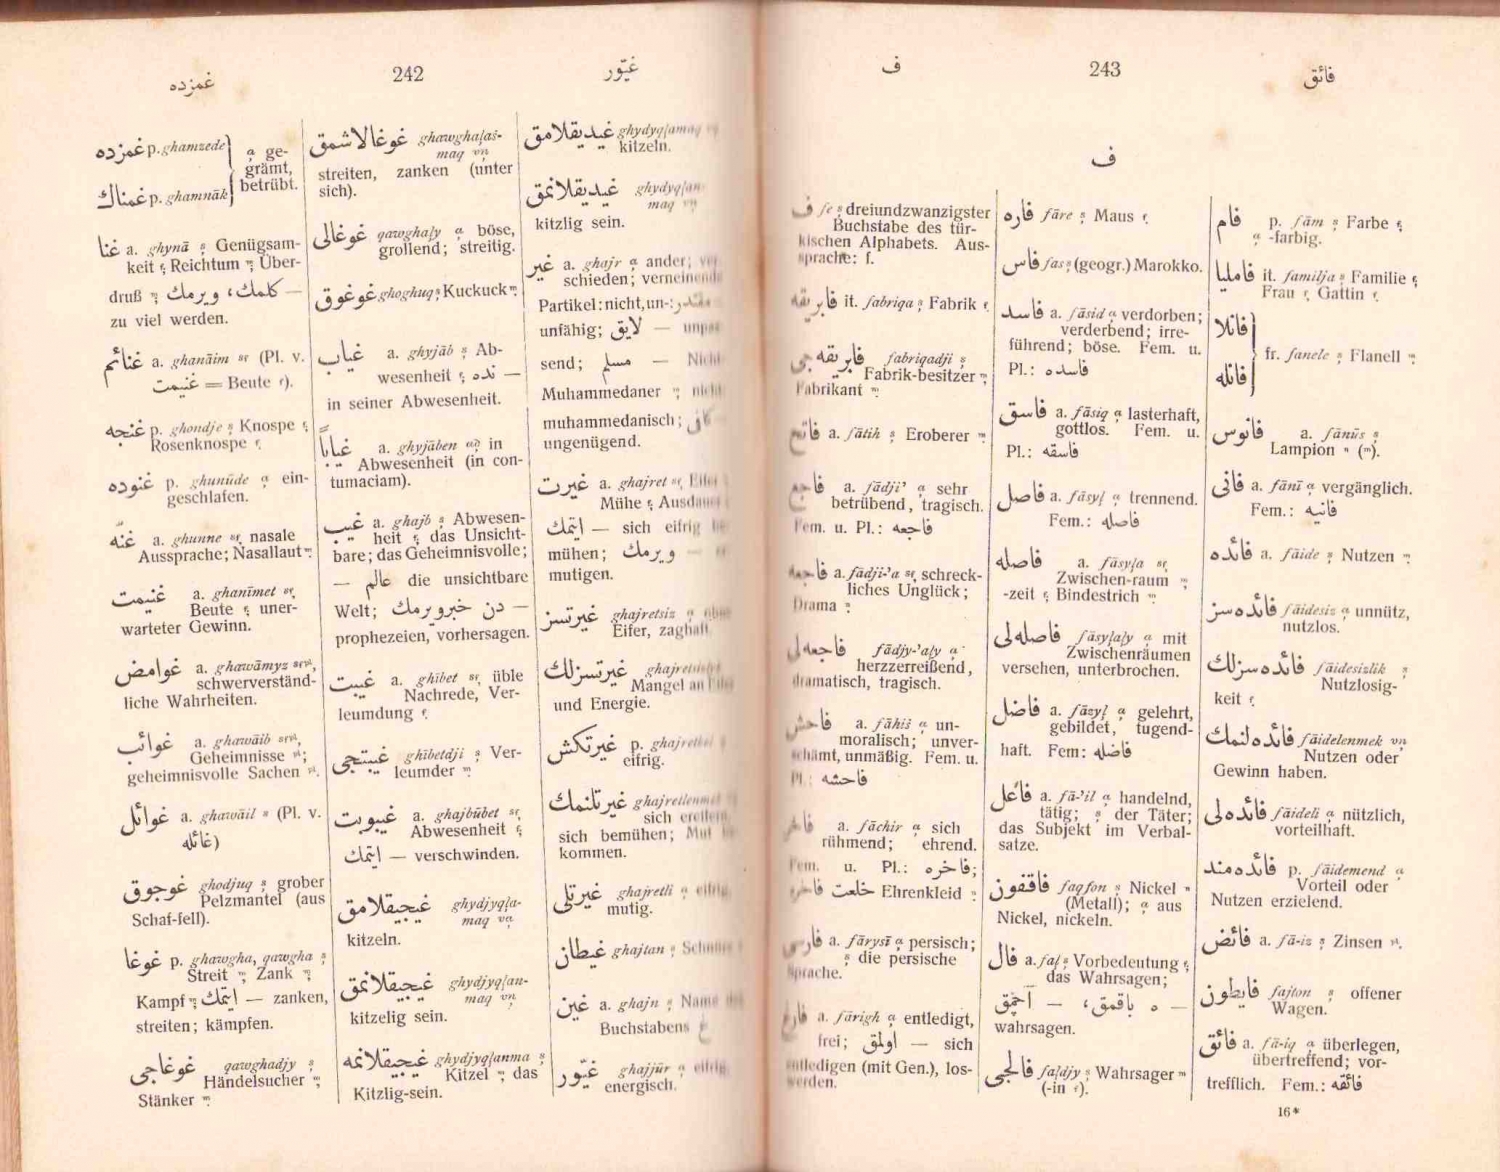 غمزده 242 غيّور
غمزده p. ghamzede
غمناك p. ghamnāk
ge-
grämt,
betrübt.
غنا a. ghynā Genügsam-
keit Reichtum Über-
druß — كلمك، ويرمك
zu viel werden.
غنائم a. ghanāim (Pl. v.
غنيمت = Beute).
غنجه p. ghondje Knospe
Rosenknospe
غنوده p. ghunūde ein-
geschlafen.
غنّه a. ghunne nasale
Aussprache; Nasallaut
غنيمت a. ghanīmet
Beute uner-
warteter Gewinn.
غوامض a. ghawāmyz
schwerverständ-
liche Wahrheiten.
غوائب a. ghawāib
Geheimnisse
geheimnisvolle Sachen
غوائل a. ghawāil (Pl. v.
غائله)
غوجوق ghodjuq grober
Pelzmantel (aus
Schaf-fell).
غوغا p. ghawgha, qawgha
Streit Zank
Kampf ايتمك — zanken,
streiten; kämpfen.
غوغاجى qawghadjy
Händelsucher
Stänker
غوغالاشمق ghawghalaš-
maq
streiten, zanken (unter
sich).
غوغالى qawghaly böse,
grollend; streitig.
غوغوق ghoghuq Kuckuck
غياب a. ghyjāb Ab-
wesenheit — نده
in seiner Abwesenheit.
غياباً a. ghyjāben in
Abwesenheit (in con-
tumaciam).
غيب a. ghajb Abwesen-
heit das Unsicht-
bare; das Geheimnisvolle;
— عالم die unsichtbare
Welt; — دن خبر ويرمك
prophezeien, vorhersagen.
غيبت a. ghībet üble
Nachrede, Ver-
leumdung
غيبتجى ghībetdji Ver-
leumder
غيبوبت a. ghajbūbet
Abwesenheit
ايتمك — verschwinden.
غيجيقلامق ghydjyqla-
maq
kitzeln.
غيجيقلانمق ghydjyqlan-
maq
kitzelig sein.
غيجيقلانمه ghydjyqlanma
Kitzel das
Kitzlig-sein.
غيديقلامق ghydyqlamaq
kitzeln.
غيديقلانمق ghydyqlan-
maq
kitzlig sein.
غير a. ghajr ander;
schieden; verneinende
Partikel: nicht, un-: مقتدر
unfähig; لايق —
send; مسلم —
Muhammedaner
muhammedanisch; كافى
ungenügend.
غيرت a. ghajret
Mühe Ausdauer
ايتمك — sich eifrig
mühen; ويرمك —
mutigen.
غيرتسز ghajretsiz
Eifer, zaghaft.
غيرتسزلك
Mangel an
und Energie.
غيرتكش p.
eifrig.
غيرتلنمك ghajretlenmek
sich ereifern,
sich bemühen; Mut
kommen.
غيرتلى ghajretli eifrig,
mutig.
غيطان ghajtan
غين a. ghajn Name des
Buchstabens غ
غيّور ghajjūr eifrig,
energisch.
ف 243 فائق
ف
ف fe dreiundzwanzigster
Buchstabe des tür-
kischen Alphabets. Aus-
sprache: f.
فابريقه it. fabriqa Fabrik
فابريقه جى fabriqadji
Fabrik-besitzer
Fabrikant
فاتح a. fātih Eroberer
فاجع a. fādji' sehr
betrübend, tragisch.
Fem. u. Pl.: فاجعه
فاجعه a. fādji-'a schreck-
liches Unglück;
Drama
فاجعه لى fādjy-'aly
herzzerreißend,
dramatisch, tragisch.
فاحش a. fāhiš un-
moralisch; unver-
schämt, unmäßig. Fem. u.
Pl.: فاحشه
فاخر a. fāchir sich
rühmend; ehrend.
Fem. u. Pl.: فاخره;
خلعت فاخره Ehrenkleid
فارسى a. fārysī persisch;
die persische
Sprache.
فارغ a. fārigh entledigt,
frei; اولمق — sich
entledigen (mit Gen.), los-
werden.
فاره fāre Maus
فاس fas (geogr.) Marokko.
فاسد a. fāsid verdorben;
verderbend; irre-
führend; böse. Fem. u.
Pl.: فاسده
فاسق a. fāsiq lasterhaft,
gottlos. Fem. u.
Pl.: فاسقه
فاصل a. fāsyl trennend.
Fem.: فاصله
فاصله a. fāsyla
Zwischen-raum
-zeit Bindestrich
فاصله لى fāsylaly mit
Zwischenräumen
versehen, unterbrochen.
فاضل a. fāzyl gelehrt,
gebildet, tugend-
haft. Fem: فاضله
فاعل a. fā-'il handelnd,
tätig; der Täter;
das Subjekt im Verbal-
satze.
فاقفون faqfon Nickel
(Metall); aus
Nickel, nickeln.
فال a. fal Vorbedeutung
das Wahrsagen;
— ه باقمق، — آچمق
wahrsagen.
فالجى faldjy Wahrsager
(-in).
فام p. fām Farbe
-farbig.
فامليا it. familja Familie
Frau Gattin
فانلا
فانله
fr. fanele Flanell
فانوس a. fānūs
Lampion
فانى a. fānī vergänglich.
Fem.: فانيه
فائده a. fāide Nutzen
فائده سز fāidesiz unnütz,
nutzlos.
فائده سزلك fāidesizlik
Nutzlosig-
keit
فائده لنمك fāidelenmek
Nutzen oder
Gewinn haben.
فائده لى fāideli nützlich,
vorteilhaft.
فائده مند p. fāidemend
Vorteil oder
Nutzen erzielend.
فائض a. fā-iz Zinsen
فايطون fajton offener
Wagen.
فائق a. fā-iq überlegen,
übertreffend; vor-
trefflich. Fem.: فائقه
16*